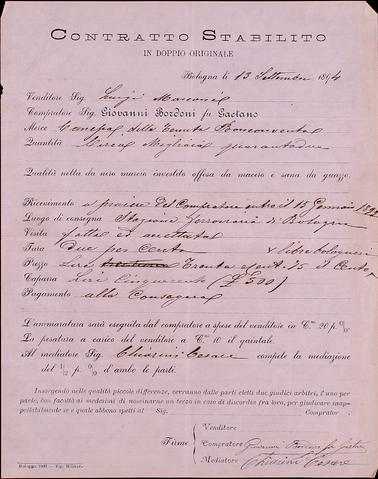 CONTRATTO STABILITO
IN DOPPIO ORIGINALE
Bologna li 13 Settembre 1894
Venditore Sig. Luigi Marconi
Compratore Sig. Giovanni Bordoni fu Gaetano
Merce Canepa della Tenuta
Quantità Circa Migliaia quarantadue
Qualità nella da nero marcio investito offesa da macero e sana da guazzo.
Ricevimento a piacere del Compratore entro il 15 Gennaio
Luogo di consegna Stazione Ferroviaria di Bologna
Visita fatta ed accettata
Tara Due per Cento x libre bolognesi
Prezzo Lire Trenta e cent. 75 il Cento x
Caparra Lire Cinquecento (£ 500)
Pagamento alla Consegna
L'ammaratura sarà eseguita dal compratore a spese del venditore in C.mi 20 p. %.
La pesatura a carico del venditore a C.mi 10 il quintale.
Al mediatore Sig. Chiarini Cesare compete la mediazione
del 1/2 p. % d'ambo le parti.
Insorgendo nelle qualità piccole differenze, verranno dalle parti eletti due giudici arbitri, l uno per
parte, con facoltà ai medesimi di nominarne un terzo in caso di discordia fra loro, per giudicare inap-
pellabilmente se e quale abbono spetti al Sig. Comprator
Firme
Venditore
Compratore Giovanni Bordoni fu Gaetano
Mediatore Chiarini Cesare
Bologna Tip. Militare